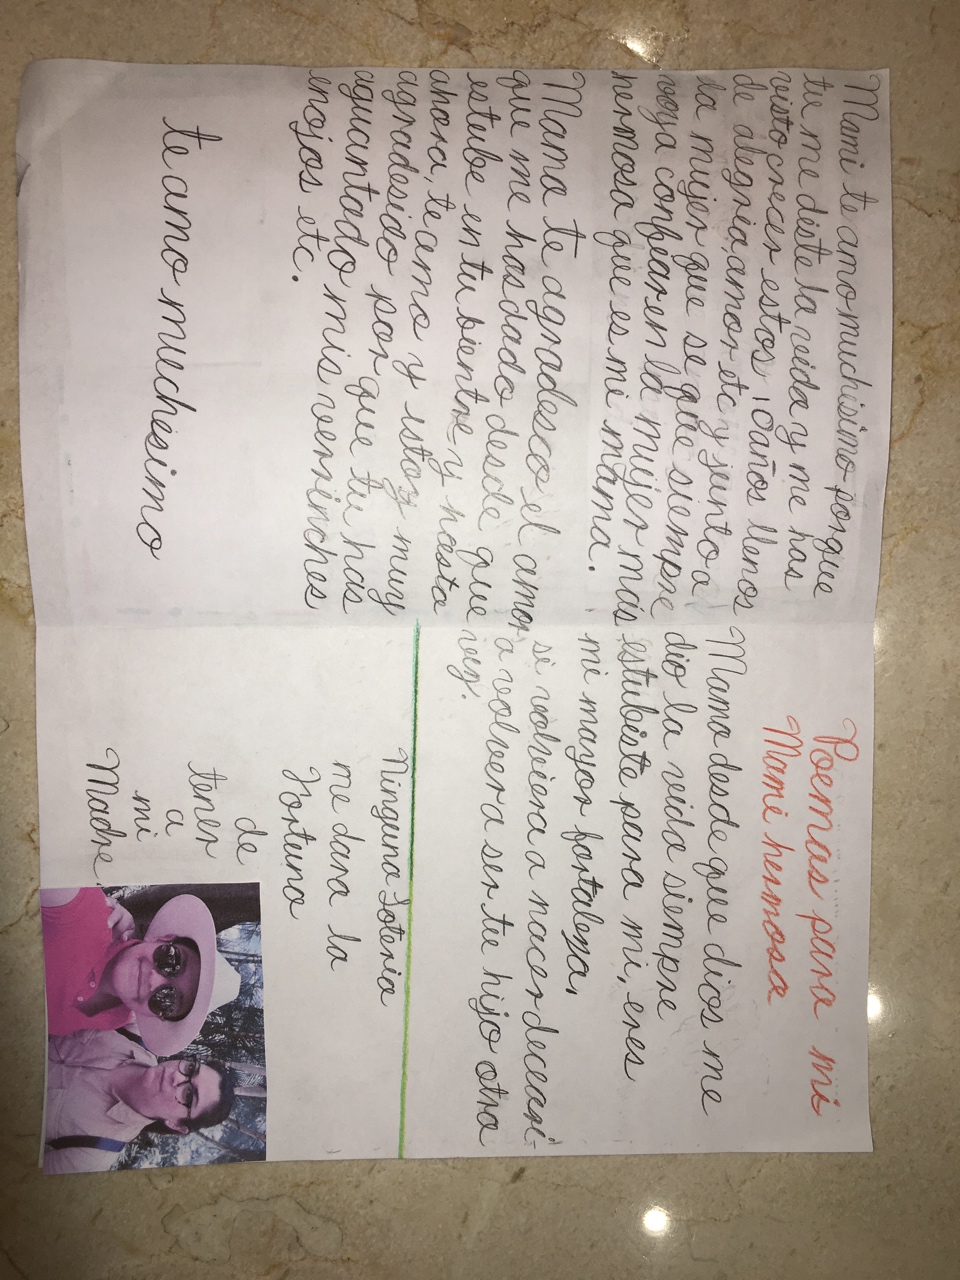 Mami te amo muchisimo porque
tu me diste la vida y me has
visto crecer estos 10 años llenos
de alegria amor etc y junto a
la mujer que se que siempre
voy a confiar en la mujer mas
hermosa que es mi mama.
Mama te agradesco el amor
que me has dado desde que
estube en tu bientre y hasta
ahora, te amo y estoy muy
agradesido por que tu has
aguantado mis verrinches
enojos etc.
te amo muchesimo
Poemas para mi
Mami hermosa
Mama desde que dios me
dio la vida siempre
estubiste para mi, eres
mi mayor fortaleza,
si volviera a nacer deceari-
a volver a ser tu hijo otra
vez.
Ninguna Loteria
me dara la
Fortuna
de
tener
a
mi
Madre.